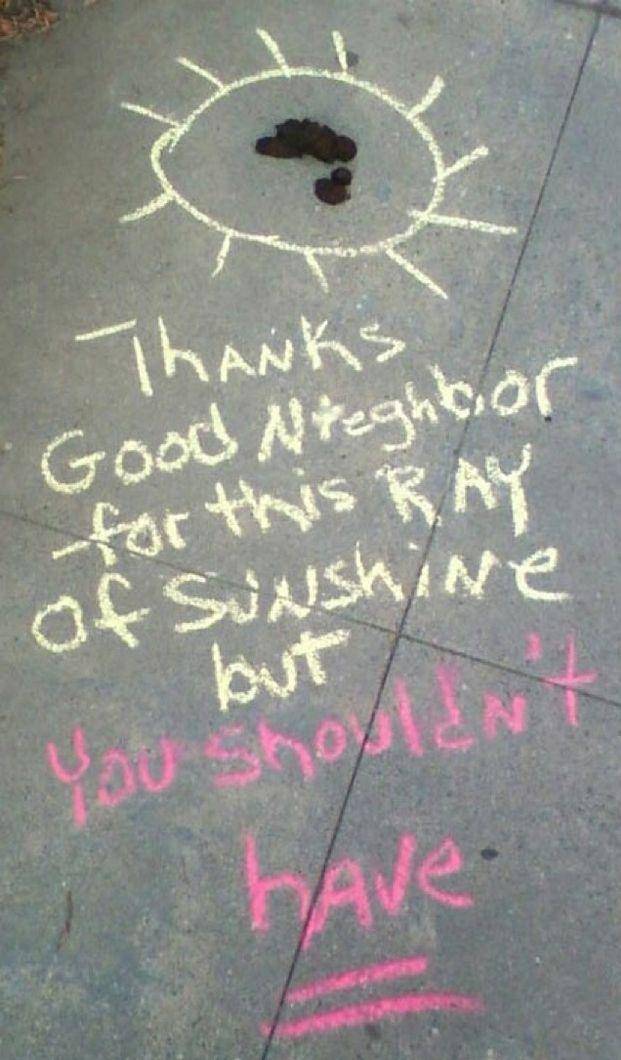 Thanks
Good Nieghbor
for this RAY
of SUNShiNe
but
You Shouldn't
hAVe